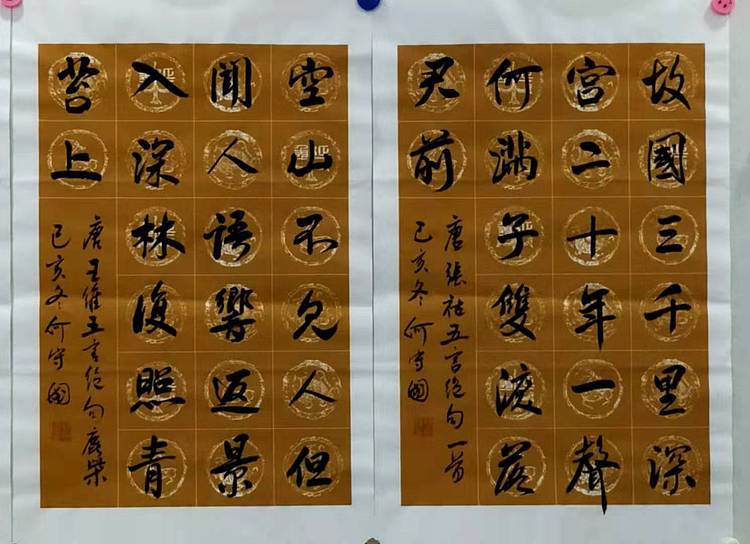 故國三千里深
宮二十年一聲
何滿子雙淚落
君前
唐張祜五言絕句一首
己亥冬何守國
空山不見人但
聞人語響返景
入深林復照青
苔上
唐王維五言絕句鹿柴
己亥冬何守國